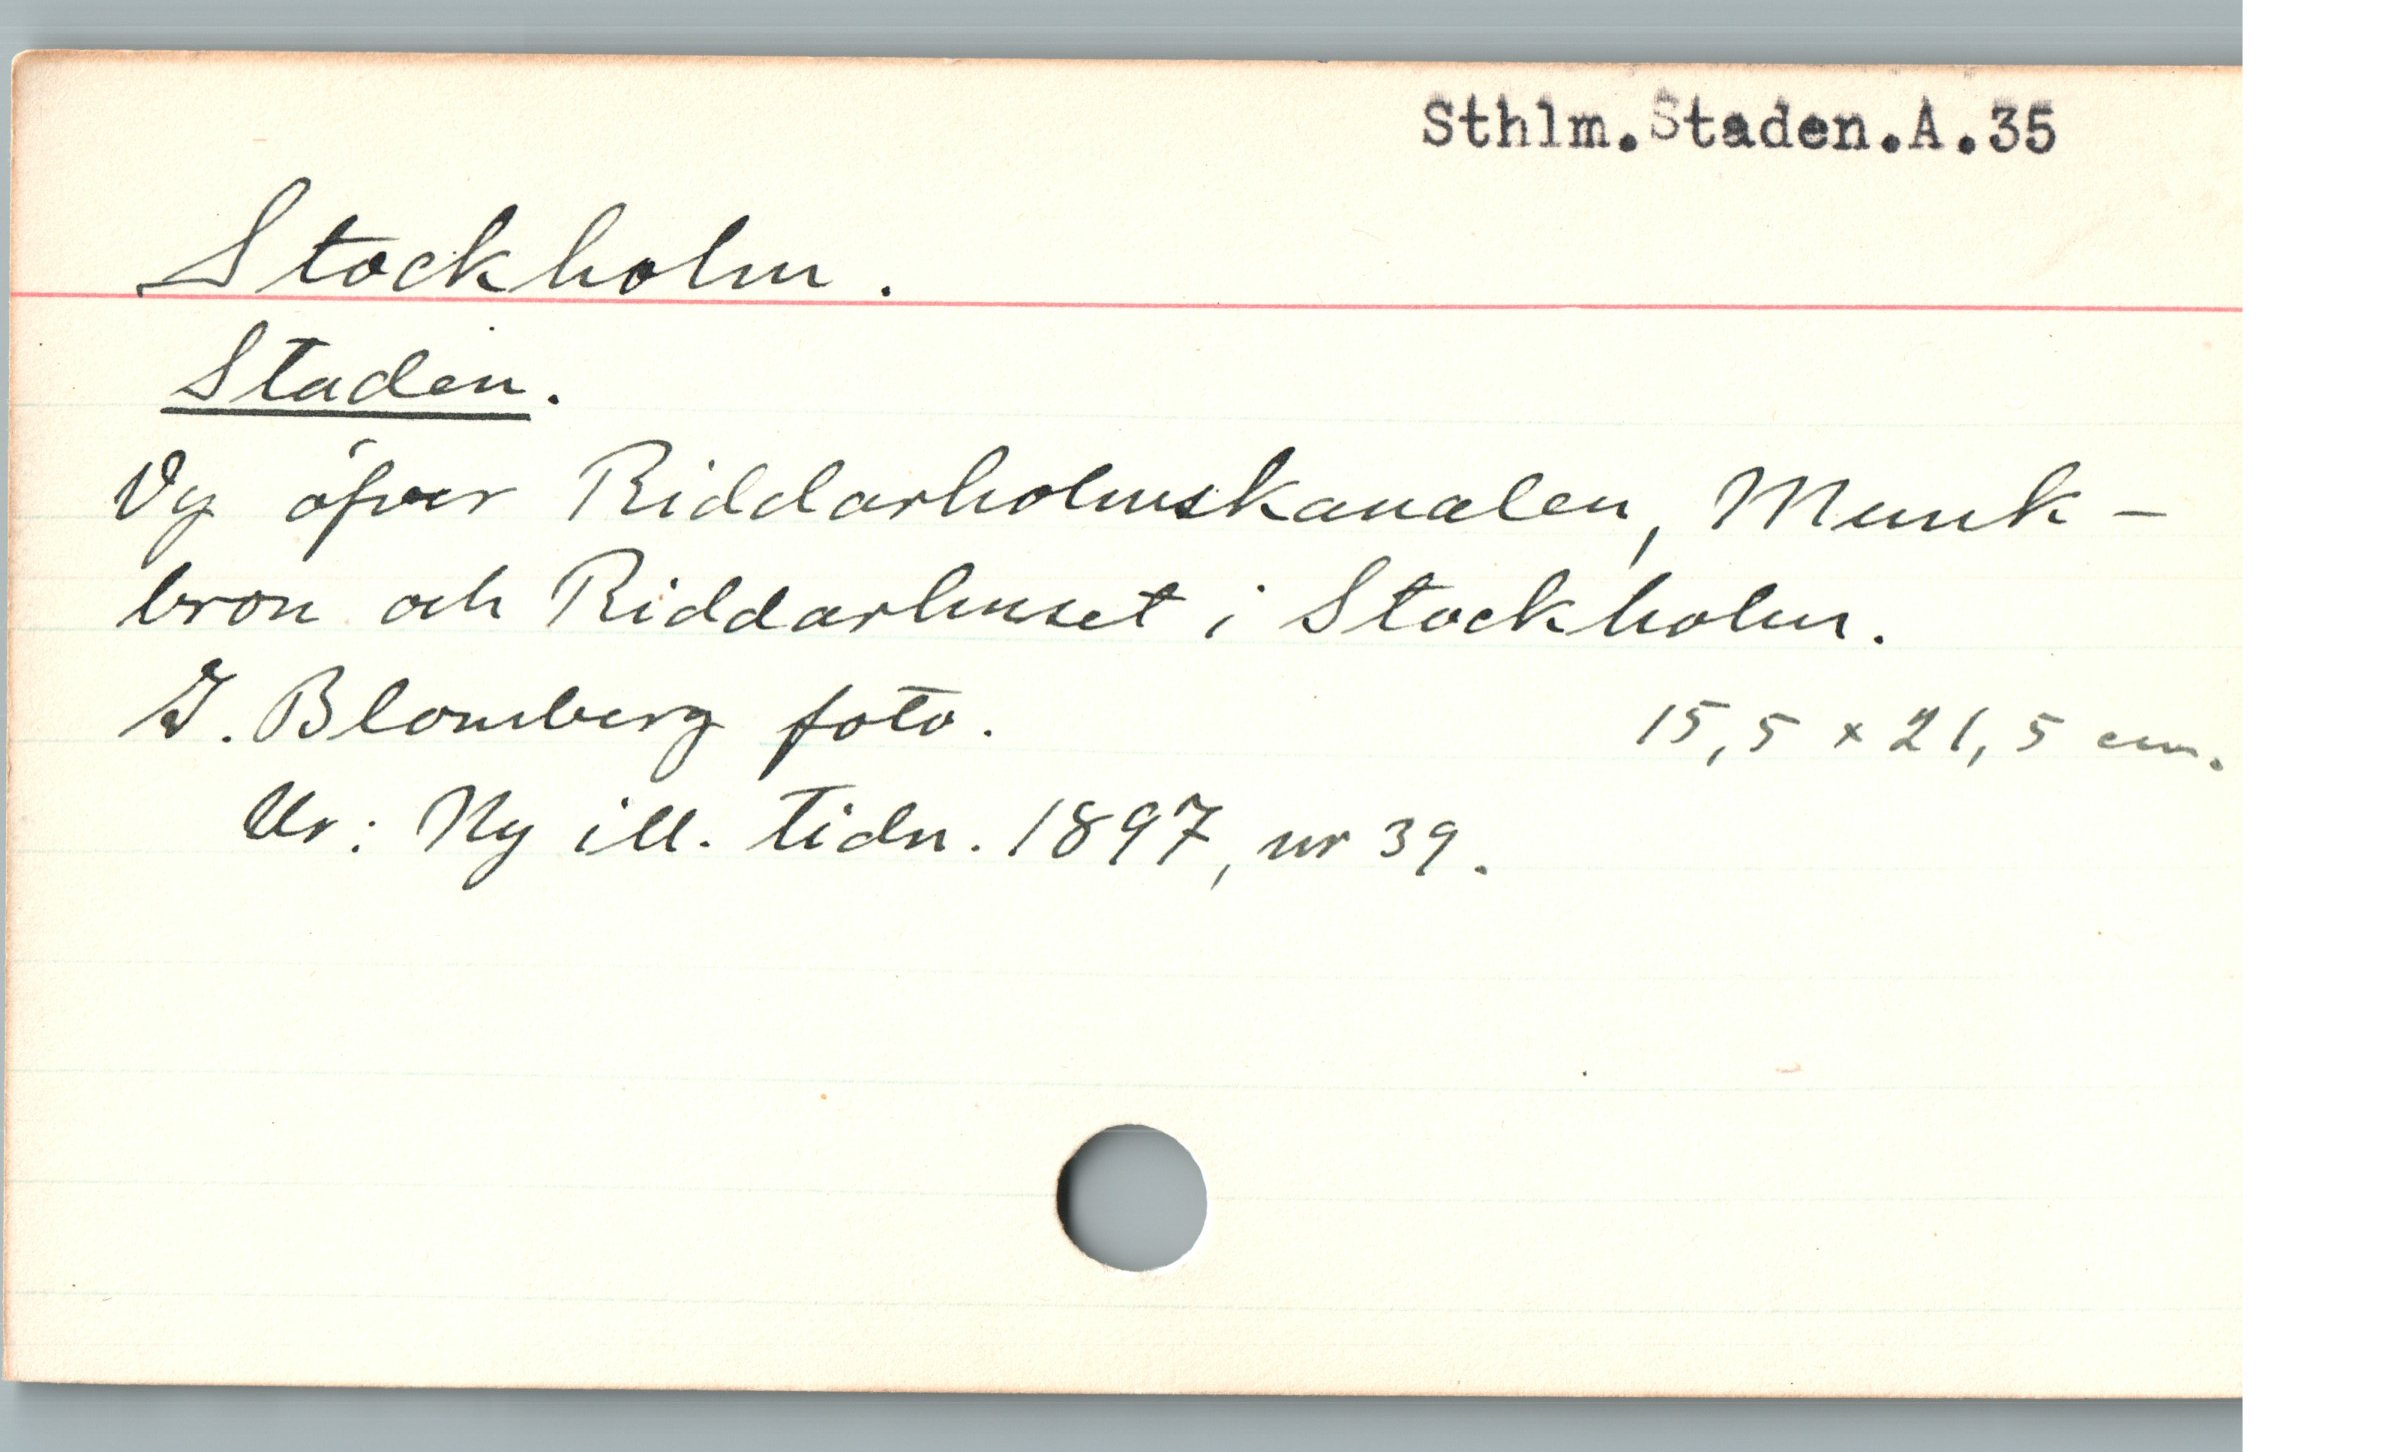 Sthlm.Staden.A.35
Stockholm.
Staden.
Vy öfver Riddarholmskanalen, Munk-
bron och Riddarhuset i Stockholm.
G. Blomberg foto. 15,5 x 21,5 cm.
Ur: Ny ill. tidn. 1897, nr 39.